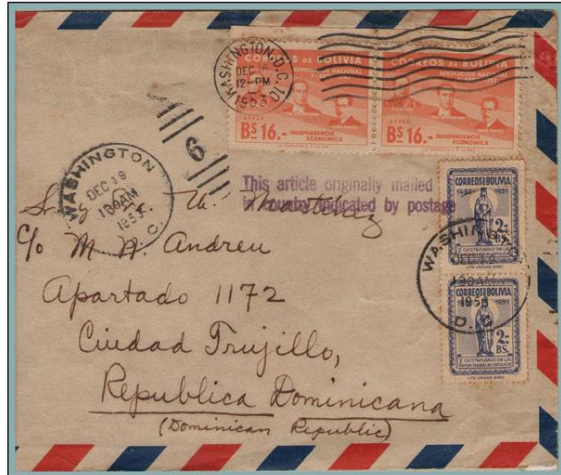 WASHINGTON, D.C. 10
DEC
12-PM
1953
CORREOS DE BOLIVIA
CORREOS DE BOLIVIA
AEREO
AEREO
BS 16.-
INDEPENDENCIA
ECONOMICA
BS 16.-
INDEPENDENCIA
ECONOMICA
6
WASHINGTON
DEC 19
1 30 AM
1953
D. C.
This article originally mailed
in country indicated by postage
CORREOS BOLIVIA
1951
2.-
BS.
WASHINGTON
1 30 AM
1953
D. C.
CORREOS BOLIVIA
1951
2.-
BS.
Martinez
c/o M. W. Andreu
Apartado 1172
Ciudad Trujillo,
Republica Dominicana
(Dominican Republic)